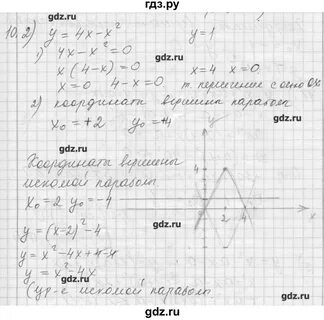 гдз.ру
10. 2) y = 4x - x² y = 1
1) 4x - x² = 0
x (4 - x) = 0 x = 4 x = 0
x = 0 4 - x = 0 т. пересечения с осью OX
2) координаты вершины параболы
x₀ = +2 y₀ = +4
Координаты вершины
искомой параболы
x₀ = 2 y₀ = -4
y = (x-2)² - 4
y = x² - 4x + 4 - 4
y = x² - 4x
(ур-е искомой параболы
y
4
2 4
x
гдз.ру